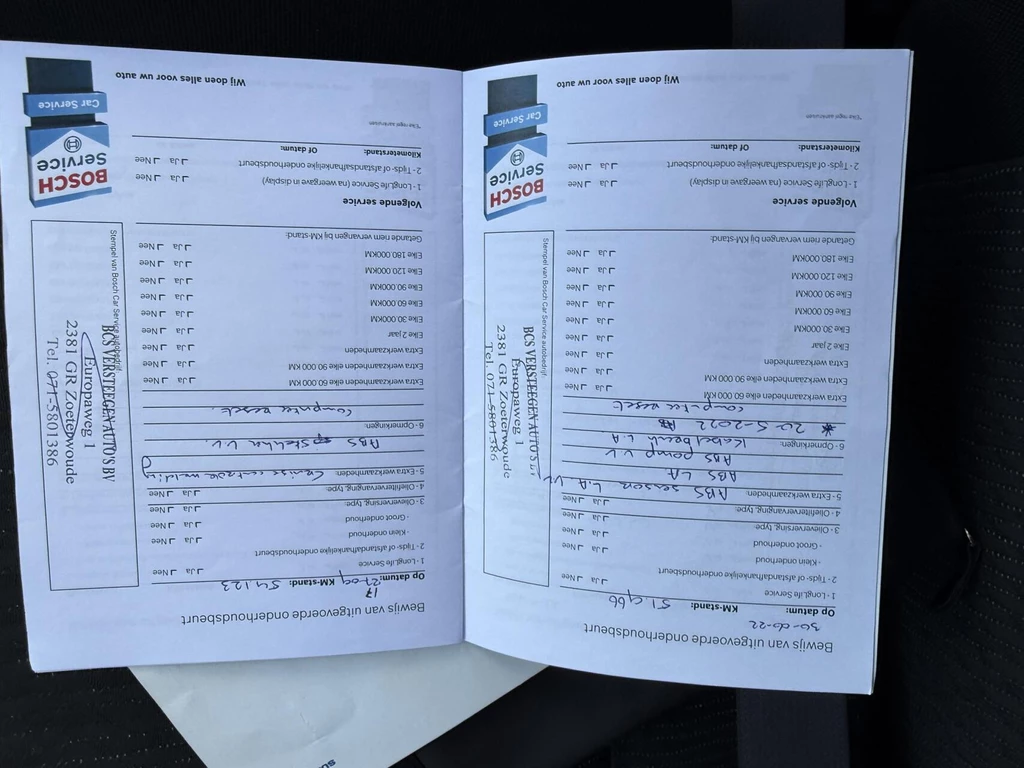 Bewijs van uitgevoerde onderhoudsbeurt
30-06-22 51.966
Op datum: KM-stand:
1 - LongLife Service Ja Nee
2 - Tijds- of afstandsafhankelijke onderhoudsbeurt
- Klein onderhoud Ja Nee
- Groot onderhoud Ja Nee
3 - Olieverversing, type: Ja Nee
4 - Oliefiltervervanging, type: Ja Nee
5 - Extra werkzaamheden: ABS sensor L.A
ABS LA
ABS pomp V.V
6 - Opmerkingen: Kabelboom L.A
* 20-5-2022
computer reset
Extra werkzaamheden elke 60 000 KM Ja Nee
Extra werkzaamheden elke 90 000 KM Ja Nee
Extra werkzaamheden Ja Nee
Elke 2 jaar Ja Nee
Elke 30 000KM Ja Nee
Elke 60 000KM Ja Nee
Elke 90 000KM Ja Nee
Elke 120 000KM Ja Nee
Elke 180 000KM Ja Nee
Getande riem vervangen bij KM-stand:
Stempel van Bosch Car Service autobedrijf
BCS VERSTEEGEN AUTO'S BV
Europaweg 1
2381 GR Zoeterwoude
Tel. 071-5801386
Volgende service
1 - LongLife Service (na weergave in display) Ja Nee
2 - Tijds- of afstandsafhankelijke onderhoudsbeurt Ja Nee
Kilometerstand: Of datum:
*Elke regel aankruisen
BOSCH
Service
Car Service
Wij doen alles voor uw auto
Bewijs van uitgevoerde onderhoudsbeurt
17
Op datum: KM-stand: 54123
1 - LongLife Service Ja Nee
2 - Tijds- of afstandsafhankelijke onderhoudsbeurt
- Klein onderhoud Ja Nee
- Groot onderhoud Ja Nee
3 - Olieverversing, type: Ja Nee
4 - Oliefiltervervanging, type: Ja Nee
5 - Extra werkzaamheden: Cruise controle melding
ABS stekker V.V.
6 - Opmerkingen:
computer reset.
Extra werkzaamheden elke 60 000 KM Ja Nee
Extra werkzaamheden elke 90 000 KM Ja Nee
Extra werkzaamheden Ja Nee
Elke 2 jaar Ja Nee
Elke 30 000KM Ja Nee
Elke 60 000KM Ja Nee
Elke 90 000KM Ja Nee
Elke 120 000KM Ja Nee
Elke 180 000KM Ja Nee
Getande riem vervangen bij KM-stand: Ja Nee
Stempel van Bosch Car Service autobedrijf
BCS VERSTEEGEN AUTO'S BV
Europaweg 1
2381 GR Zoeterwoude
Tel. 071-5801386
Volgende service
1 - LongLife Service (na weergave in display) Ja Nee
2 - Tijds- of afstandsafhankelijke onderhoudsbeurt Ja Nee
Kilometerstand: Of datum:
*Elke regel aankruisen
BOSCH
Service
Car Service
Wij doen alles voor uw auto